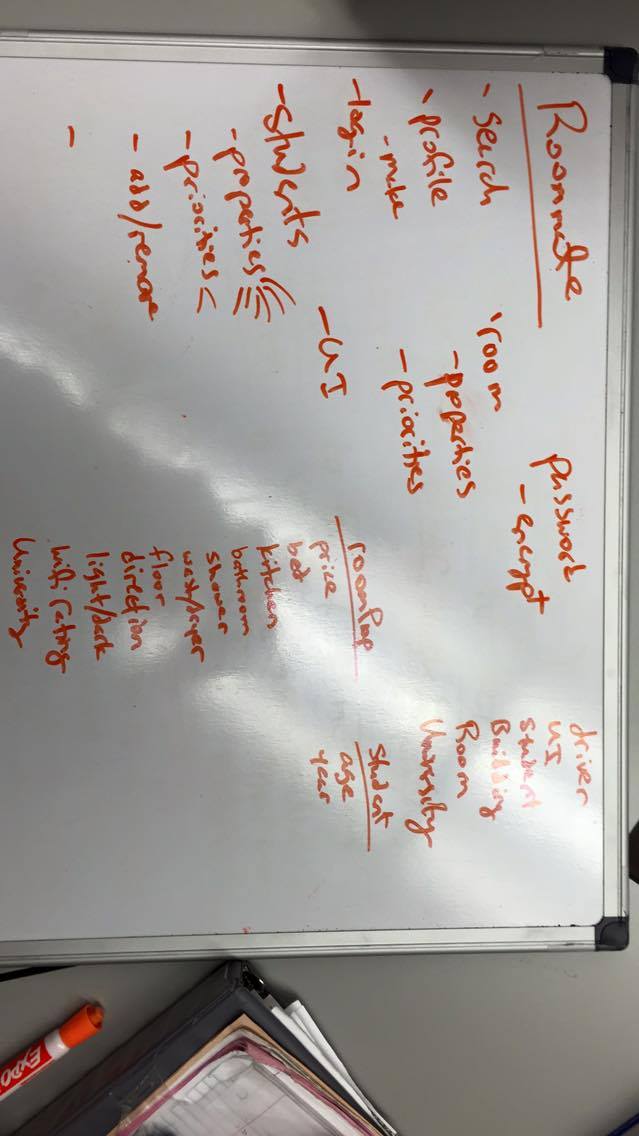 Roommate
- search
- profile
- make
- login
- students
- properties
- priorities
- add/remove
-
- room
- properties
- priorities
- UI
password
- encrypt
roomProp
price
bed
kitchen
bathroom
shower
wash/dryer
floor
direction
light/dark
wifi rating
University
driver
UI
student
Building
Room
University
Student
age
year
EXPO